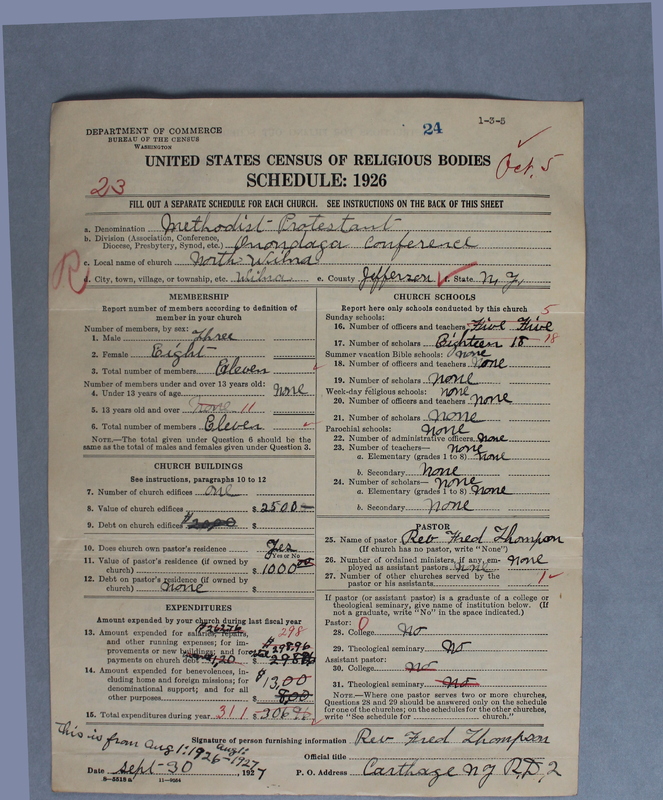 24
1-3-5
DEPARTMENT OF COMMERCE
BUREAU OF THE CENSUS
WASHINGTON
UNITED STATES CENSUS OF RELIGIOUS BODIES
Oct. 5
23
SCHEDULE: 1926
FILL OUT A SEPARATE SCHEDULE FOR EACH CHURCH. SEE INSTRUCTIONS ON THE BACK OF THIS SHEET
a. Denomination Methodist Protestant
b. Division (Association, Conference, Diocese, Presbytery, Synod, etc.) Onondaga Conference
c. Local name of church North Wilna
R
d. City, town, village, or township, etc. Wilna e. County Jefferson f. State N.Y.
MEMBERSHIP
Report number of members according to definition of member in your church
Number of members, by sex:
1. Male Three
2. Female Eight
3. Total number of members Eleven
Number of members under and over 13 years old:
4. Under 13 years of age None
5. 13 years old and over None 11
6. Total number of members Eleven
NOTE.—The total given under Question 6 should be the same as the total of males and females given under Question 3.
CHURCH BUILDINGS
See instructions, paragraphs 10 to 12
7. Number of church edifices one
8. Value of church edifices $ 2500
9. Debt on church edifices $
10. Does church own pastor's residence Yes
Yes or No
11. Value of pastor's residence (if owned by church) $ 1000 00
12. Debt on pastor's residence (if owned by church) None $
EXPENDITURES
Amount expended by your church during last fiscal year
13. Amount expended for salaries, repairs, and other running expenses; for improvements or new buildings; and for payments on church debt 298 $ 298.96
14. Amount expended for benevolences, including home and foreign missions; for denominational support; and for all other purposes $ 13,00
8,00
15. Total expenditures during year 311 $ 306 96
CHURCH SCHOOLS
Report here only schools conducted by this church
Sunday schools:
16. Number of officers and teachers Five Five 5
17. Number of scholars Eighteen 18 18
Summer vacation Bible schools: none
18. Number of officers and teachers None
19. Number of scholars None
Week-day religious schools: none
20. Number of officers and teachers None
21. Number of scholars None
Parochial schools: None
22. Number of administrative officers None
23. Number of teachers— None
a. Elementary (grades 1 to 8) None
b. Secondary None
24. Number of scholars— None
a. Elementary (grades 1 to 8) None
b. Secondary None
PASTOR
25. Name of pastor Rev Fred Thompson
(If church has no pastor, write "None")
26. Number of ordained ministers, if any, employed as assistant pastors None
27. Number of other churches served by the pastor or his assistants 1
If pastor (or assistant pastor) is a graduate of a college or theological seminary, give name of institution below. (If not a graduate, write "No" in the space indicated.)
Pastor: 0
28. College No
29. Theological seminary No
Assistant pastor:
30. College No
31. Theological seminary No
NOTE.—Where one pastor serves two or more churches, Questions 28 and 29 should be answered only on the schedule for one of the churches; on the schedules for the other churches, write "See schedule for ........ church."
This is from Aug 1: 1926 - Aug 1: 1927
Signature of person furnishing information Rev Fred Thompson
Official title
Date Sept-30, 1927
P. O. Address Carthage N Y R.D, 2
8-5518a 11-9564